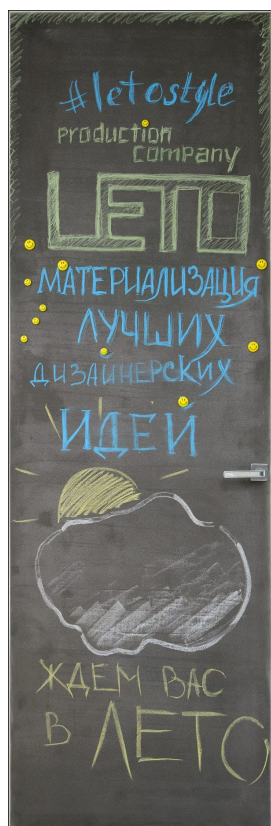 #letostyle
production
company
LETO
МАТЕРИАЛИЗАЦИЯ
ЛУЧШИХ
ДИЗАЙНЕРСКИХ
ИДЕЙ
ЖДЕМ ВАС
В ЛЕТО